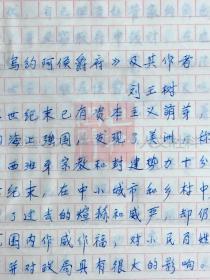 乌约阿侯爵府》及其作者
刘玉树
世纪末已有资本主义萌芽，
海上强国，发现了美洲
西班牙宗教和封建势力十分
纪末，在中小城市和乡村中
了过去的煊赫和威严，却仍
国内作威作福，对小民百姓
并对政局具有很大的影响。